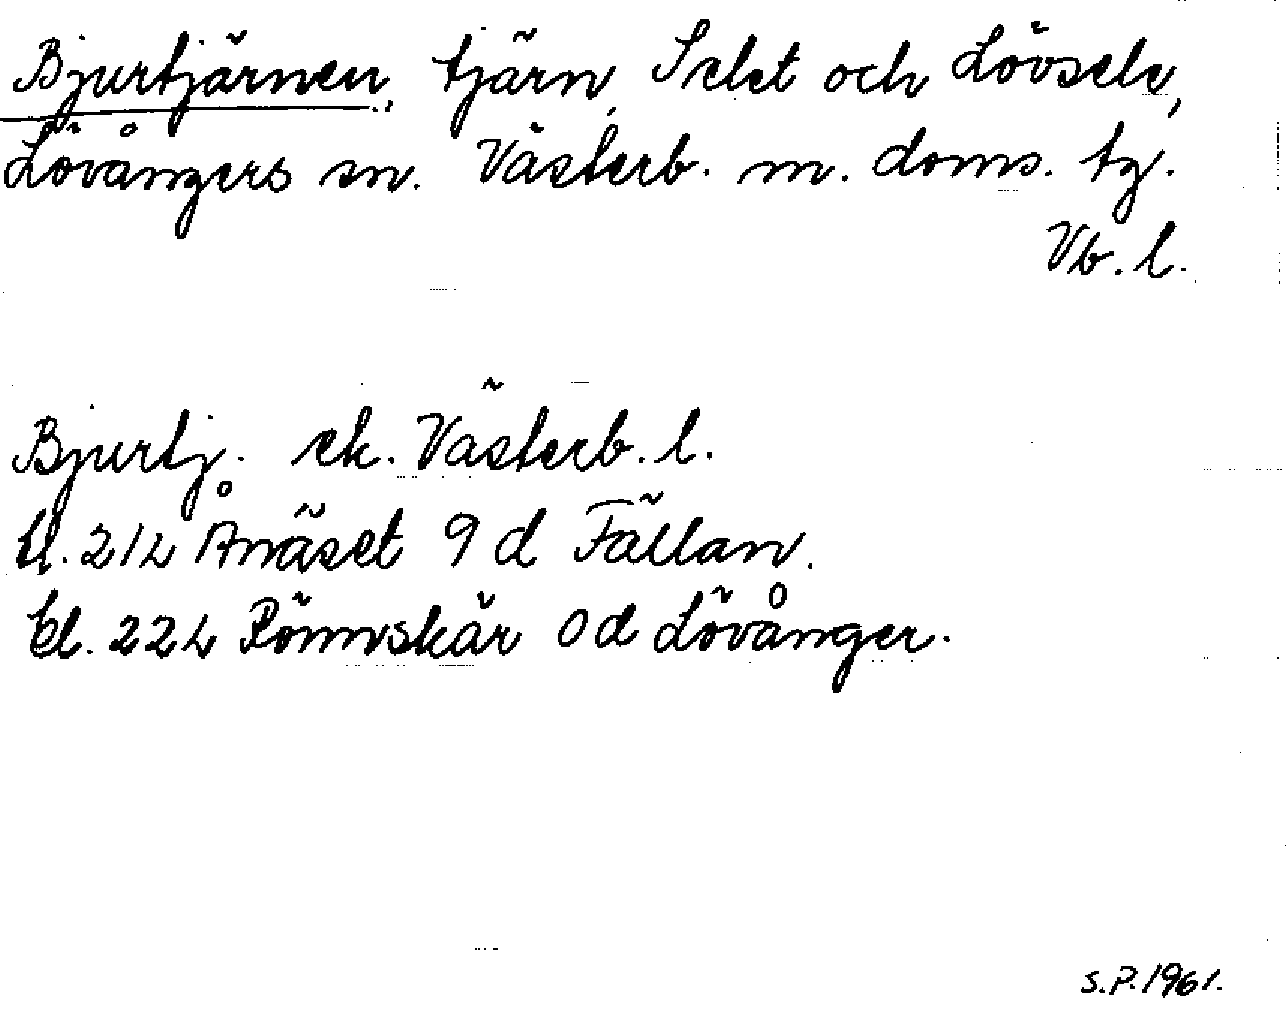 Bjurtjärnen, tjärn, Selet och Lövsele,
Lövångers sn. Västerb. m. doms. tg.
Vb. l.
Bjurtj. ek. Västerb. l.
bl. 21L Ånäset 9 d Fällan.
bl. 22L Rönnskär 0d Lövånger.
S.P. 1961.